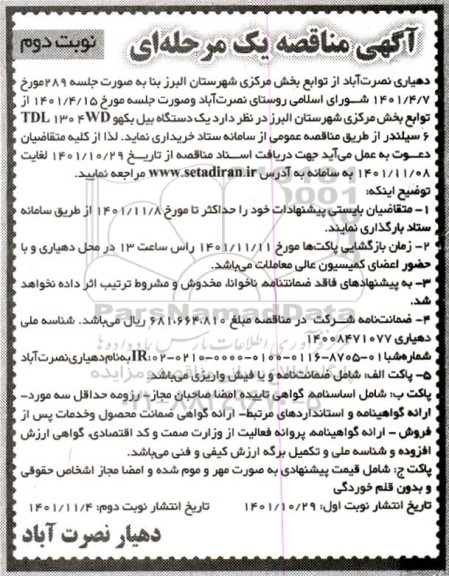 آگهی مناقصه یک مرحله‌ای
نوبت دوم
دهیاری نصرت‌آباد از توابع بخش مرکزی شهرستان البرز بنا به صورت جلسه ۲۸۹مورخ
۱۴۰۱/۴/۷ شورای اسلامی روستای نصرت‌آباد وصورت جلسه مورخ ۱۴۰۱/۴/۱۵ از
توابع بخش مرکزی شهرستان البرز در نظر دارد یک دستگاه بیل بکهو TDL ۱۳۰ ۴WD
۶ سیلندر از طریق مناقصه عمومی از سامانه ستاد خریداری نماید. لذا از کلیه متقاضیان
دعوت به عمل می‌آید جهت دریافت اسناد مناقصه از تاریخ ۱۴۰۱/۱۰/۲۹ لغایت
۱۴۰۱/۱۱/۰۸ به سامانه به آدرس www.setadiran.ir مراجعه نمایید.
توضیح اینکه:
۱- متقاضیان بایستی پیشنهادات خود را حداکثر تا مورخ ۱۴۰۱/۱۱/۸ از طریق سامانه
ستاد بارگذاری نمایند.
۲- زمان بازگشایی پاکت‌ها مورخ ۱۴۰۱/۱۱/۱۱ راس ساعت ۱۳ در محل دهیاری و با
حضور اعضای کمیسیون عالی معاملات می‌باشد.
۳- به پیشنهادهای فاقد ضمانتنامه، ناخوانا، مخدوش و مشروط ترتیب اثر داده نخواهد
شد.
۴- ضمانت‌نامه شرکت در مناقصه مبلغ ۶۸۱،۶۶۴،۸۱۰ ریال می‌باشد. شناسه ملی
دهیاری ۱۴۰۰۸۴۷۱۰۷۷
شماره‌شبا IR:۰۲-۰۲۱۰-۰۰۰۰-۰۱۰۰-۰۱۱۶-۸۷۰۵-۰۱به‌نام‌دهیاری‌نصرت‌آباد
۵- پاکت الف: شامل ضمانت‌نامه و یا فیش واریزی می‌باشد.
پاکت ب: شامل اساسنامه، گواهی تاییده امضا صاحبان مجاز - رزومه حداقل سه مورد-
ارائه گواهینامه و استانداردهای مرتبط- ارائه گواهی ضمانت محصول وخدمات پس از
فروش - ارائه گواهینامه، پروانه فعالیت از وزارت صمت و کد اقتصادی، گواهی ارزش
افزوده و شناسه ملی و تکمیل برگه ارزش کیفی و فنی می‌باشد.
پاکت ج: شامل قیمت پیشنهادی به صورت مهر و موم شده و امضا مجاز اشخاص حقوقی
و بدون قلم خوردگی
تاریخ انتشار نوبت اول: ۱۴۰۱/۱۰/۲۹ تاریخ انتشار نوبت دوم: ۱۴۰۱/۱۱/۴
دهیار نصرت آباد
ParsNamadData